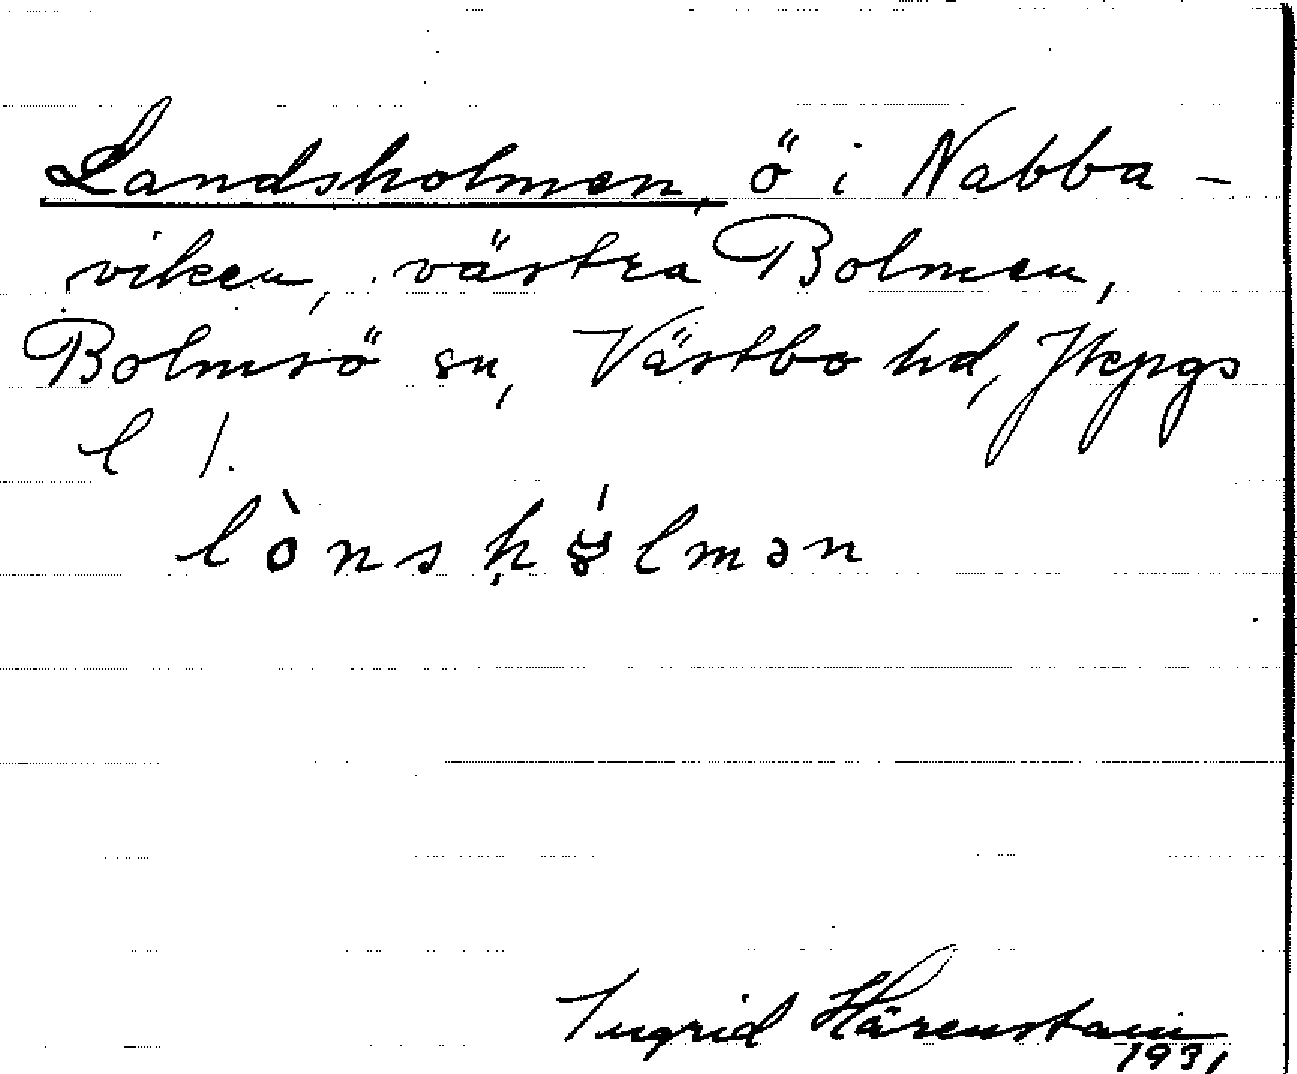 Landsholmen, ö i Nabba-
viken, västra Bolmen,
Bolmsö sn, Västbo hd, Jkpgs
l.
lònsḥólmən
Ingrid Härenstam
1931